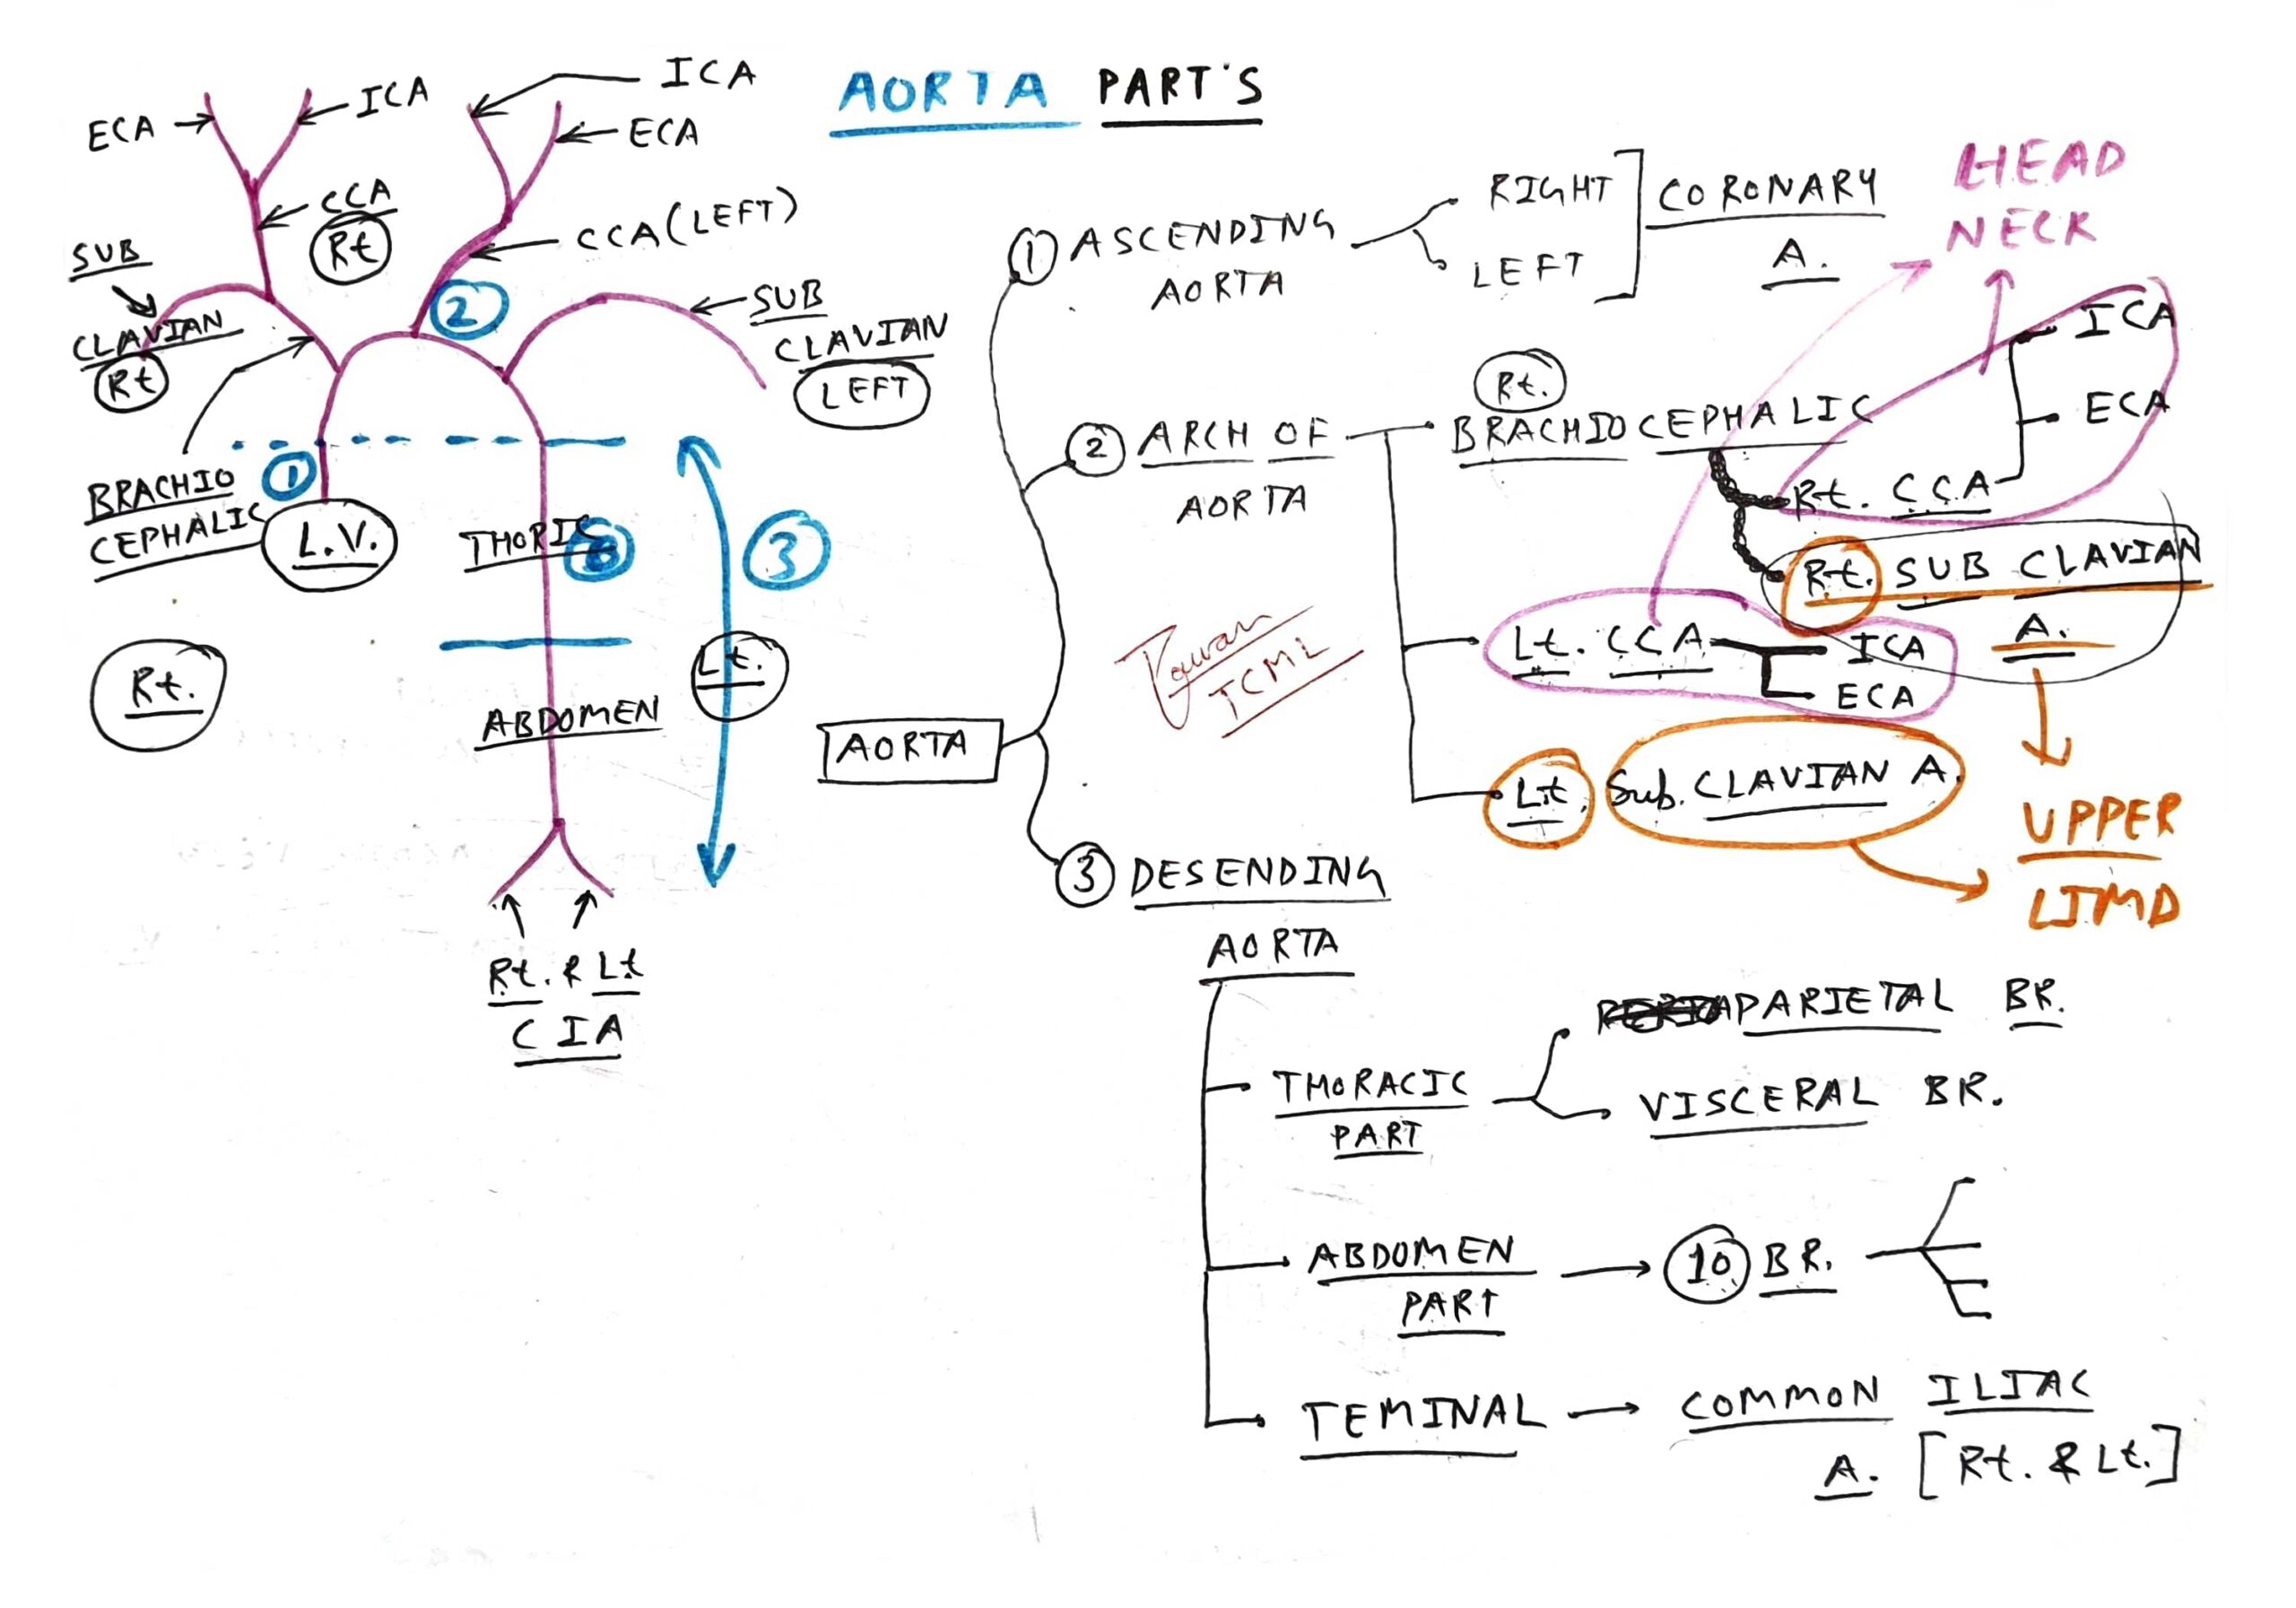 AORTA PART'S
ECA
ICA
ICA
ECA
CCA
Rt
CCA (LEFT)
SUB
CLAVIAN
Rt
2
SUB
CLAVIAN
LEFT
BRACHIO
CEPHALIC
1
L.V.
THORIC
3
Rt.
Lt.
ABDOMEN
Rt. & Lt
CIA
AORTA
1 ASCENDING
AORTA
RIGHT
LEFT
CORONARY
A.
HEAD
NECK
2 ARCH OF
AORTA
Rt.
BRACHIOCEPHALIC
ICA
ECA
Rt. CCA
Rt. SUB CLAVIAN
A.
Lt. CCA
ICA
ECA
Lt. Sub. CLAVIAN A.
UPPER
LIMD
TCML
3 DESENDING
AORTA
THORACIC
PART
PARIETAL BR.
VISCERAL BR.
ABDOMEN
PART
10 BR.
TEMINAL
COMMON ILIAC
A. [Rt. & Lt.]